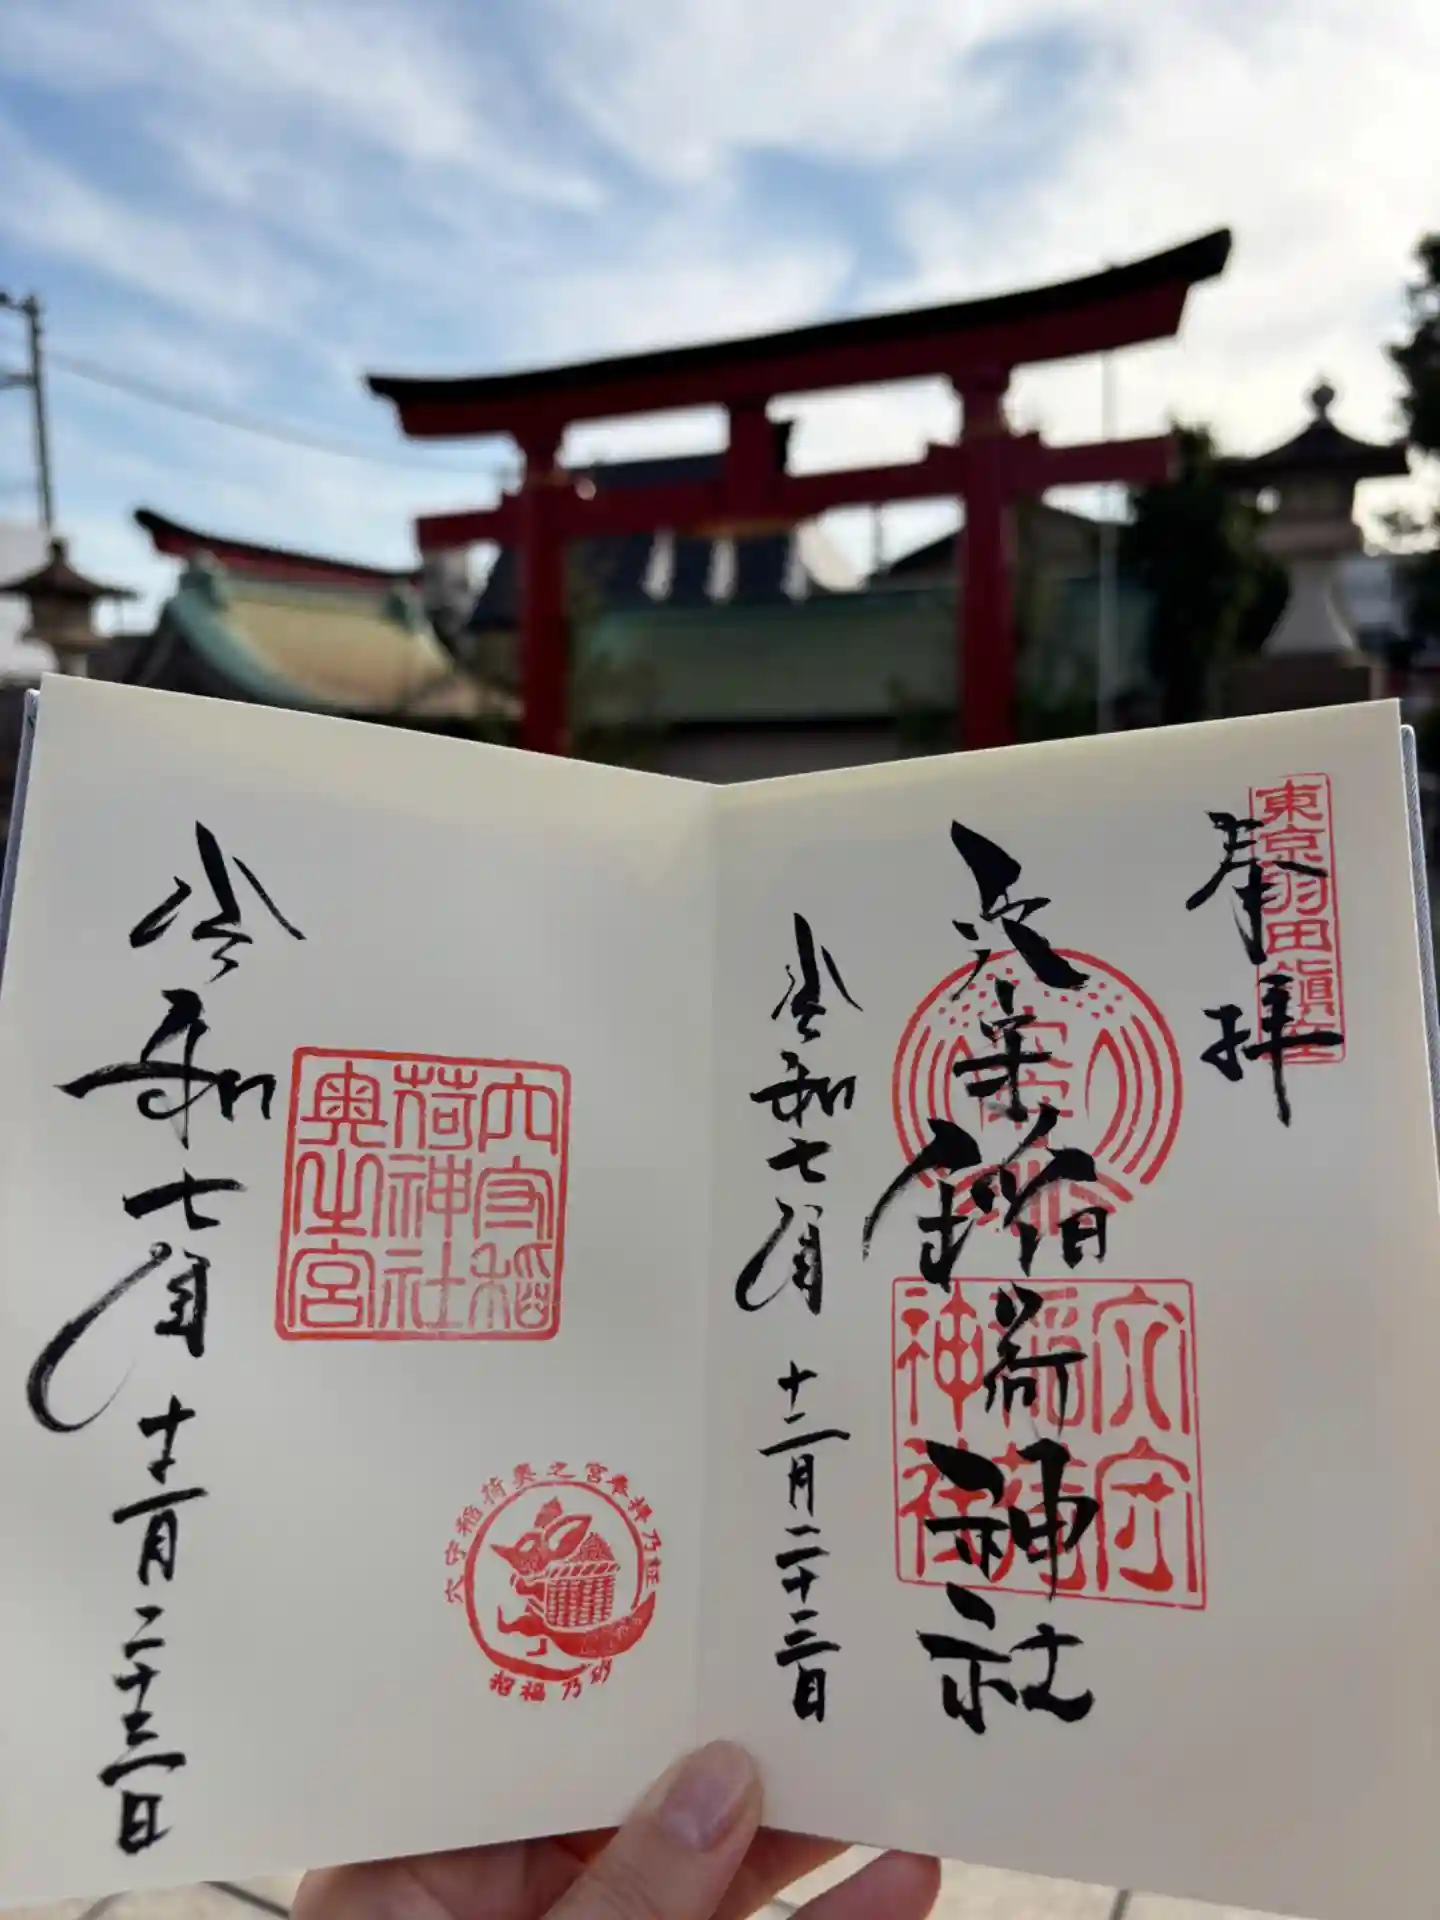 東京羽田鎮座
奉拝
穴守稲荷神社
穴守
稲荷
神社
令和七年十二月二十三日
穴守稲
荷神社
奥之宮
穴守稲荷奥之宮奉拝乃証
招福乃砂
令和七年十二月二十三日